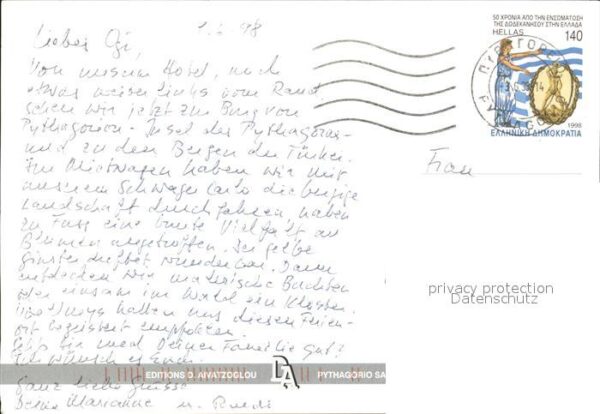 1.6.98
Lieber Ogi,
Von unserem Hotel, noch
etwas weiter links vom Rand
sehen wir jetzt zur Burg von
Pythagorion - Insel des Pythagoras -
und zu den Bergen der Türkei.
Im Mietwagen haben wir mit
unserem Schwager Carlo die bergige
Landschaft durchfahren, haben
zu Fuss eine bunte Vielfalt an
Blumen angetroffen. Der gelbe
Ginster duftet wunderbar. Dann
entdecken wir malerische Buchten
oder einsam im Wald ein Kloster.
haben uns diesen Ferien-
ort begeistert empfohlen.
Geht es Dir und Deiner Familie gut?
Ich wünsch es Euch.
Ganz liebe Grüsse
Deine Marianne u. Ruedi
Frau
50 ΧΡΟΝΙΑ ΑΠΟ ΤΗΝ ΕΝΣΩΜΑΤΩΣΗ
ΤΗΣ ΔΩΔΕΚΑΝΗΣΟΥ ΣΤΗΝ ΕΛΛΑΔΑ
HELLAS 140
1998
ΕΛΛΗΝΙΚΗ ΔΗΜΟΚΡΑΤΙΑ
privacy protection
Datenschutz
EDITIONS D. AIVATZOGLOU DA PYTHAGORIO SA